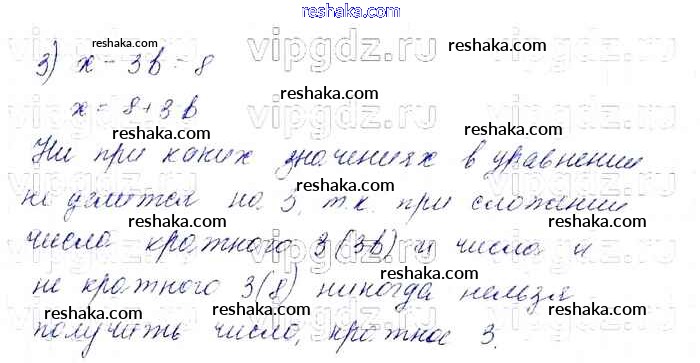 reshaka.com
vipgdz.ru vipgdz.ru
3) x - 3b = 8
reshaka.com reshaka.com
x = 8 + 3b
Ни при каких значениях в уравнении
reshaka.com reshaka.com
vipgdz.ru vipgdz.ru
не делится на 3, т.к. при сложении
reshaka.com reshaka.com
числа кратного 3 (3b) и числа и
reshaka.com reshaka.com
не кратного 3 (8) никогда нельзя
reshaka.com reshaka.com
vipgdz.ru vipgdz.ru
получить число, кратное 3.
reshaka.com reshaka.com